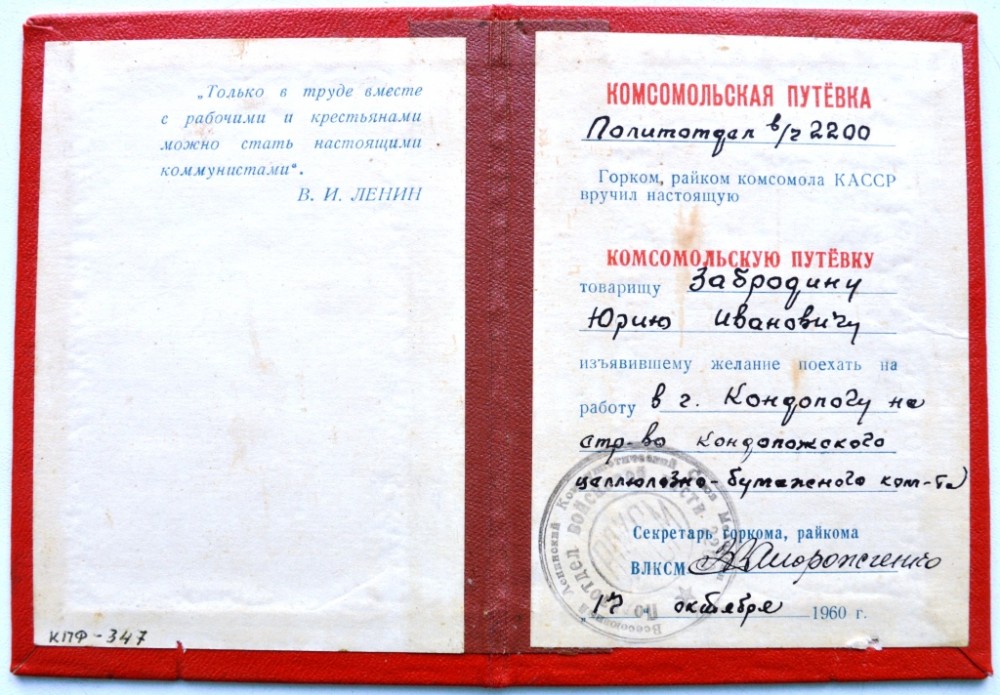 „Только в труде вместе
с рабочими и крестьянами
можно стать настоящими
коммунистами“.
В. И. ЛЕНИН
КПФ-347
КОМСОМОЛЬСКАЯ ПУТЁВКА
Политотдел в/ч 2200
Горком, райком комсомола КАССР
вручил настоящую
КОМСОМОЛЬСКУЮ ПУТЁВКУ
товарищу Забродину
Юрию Ивановичу
изъявившему желание поехать на
работу в г. Кондопогу на
стр-во Кондопожского
целлюлозно-бумажного ком-та
Секретарь горкома, райкома
ВЛКСМ
„17“ октября 1960 г.
Всесоюзный Ленинский Коммунистический Союз